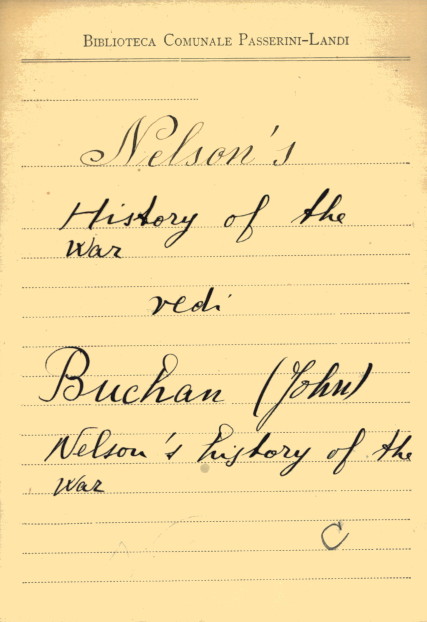 Biblioteca Comunale Passerini-Landi
Nelson's
History of the
War
vedi
Buchan (John)
Nelson's history of the
War
C